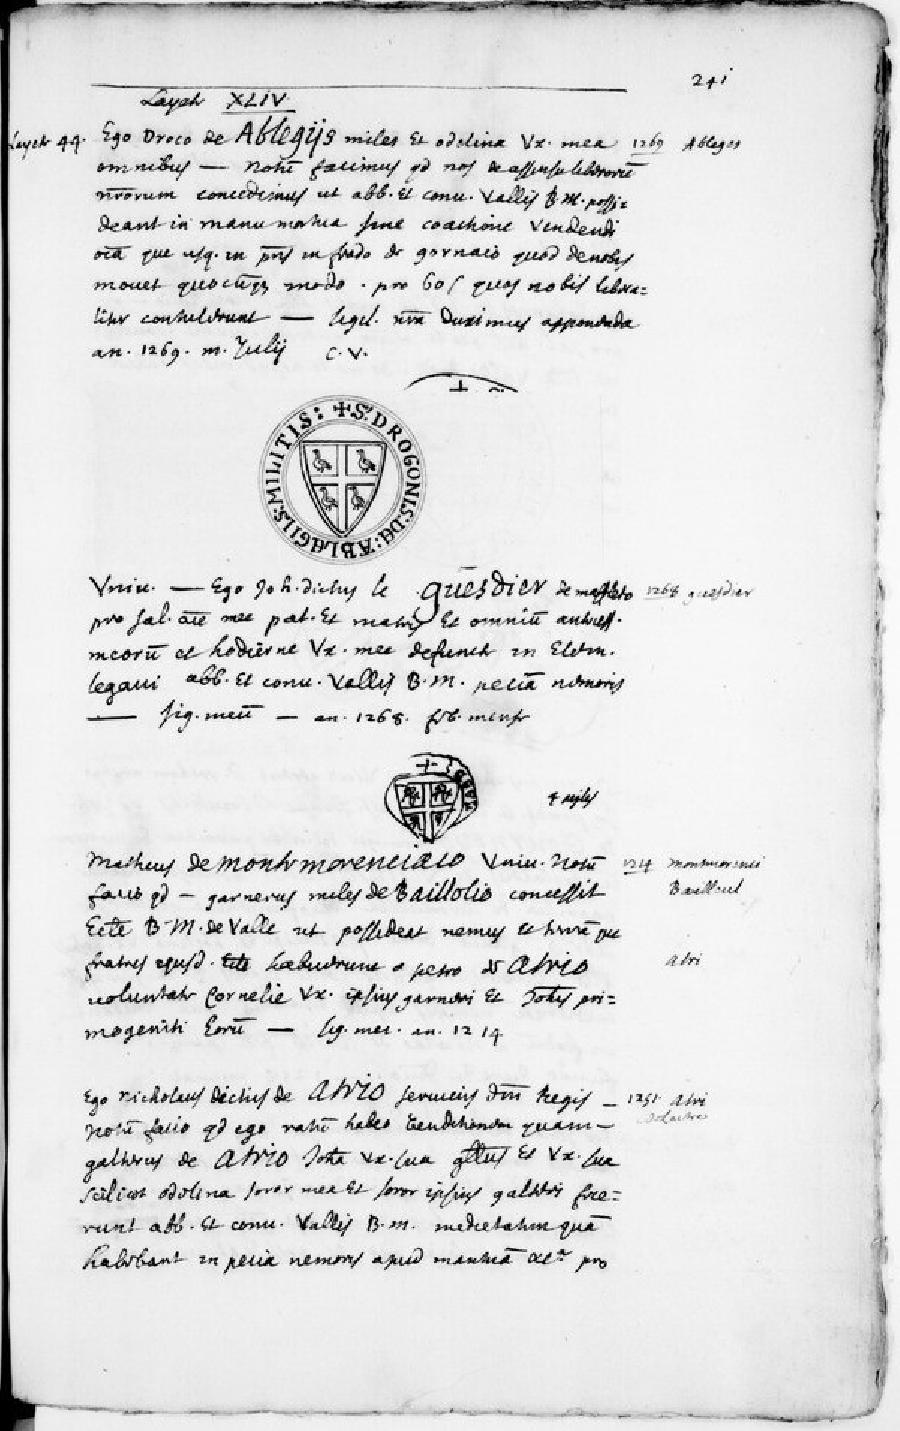 241
Layette XLIV
Layette 44. Ego Droco de Ablegijs miles Et odelina Vx. mea 1269 Ableges
omnibus — Notũ facimus qd nos de assensu
nrõrum concedimus ut abb. Et conu. Vallis B M. possi=
deant in manu mortua sine coactione Vendendi
oĩa que usq. in pñs in feodo de gornaio quod de nobis
mouet quocũqz modo. pro 60 s quos nobis libera=
liter contulerunt — sigil. nrã duximus apponenda
an. 1269. m. Julij C. V.
+ S' DROGONIS: DE: ABLEGIIS: MILITIS:
Vniu. — Ego Joh. dictus le guesdier de 1268 guesdier
pro sal. aĩe mee pat. Et matris Et omniũ antecess.
meorũ et hodierne Vx. mee defuncte in Elem.
legaui abb. Et conu. Vallis B. M. peciã nemoris
— sig. meũ — an. 1268. feb. mense
+
4
Matheus de montemorenciaco Vniu. Notũ 1214 montmorenci
facio qd — garnerus miles de Baillolio concessit Bailleul
Eccle B M. de Valle ut possideat nemus et terrã que
fratres ejusd. habuerunt a petro de Atrio atri
voluntate Cornelie Vx. ipsius garneri Et Johis pri=
mogeniti Eorũ — sig. mei. an. 1214
Ego Nicholaus dictus de Atrio seruiens dñi Regis — 1251 atri
Notũ facio qd ego ratũ habeo Venditionem quam —
galterus de Atrio Joha Vx. sua Et Vx. sua
scilicet odelina soror mea Et soror ipsius galteri fece=
runt abb. Et conu. Vallis B. m. medietatem quã
habebant in pecia nemoris apud pro